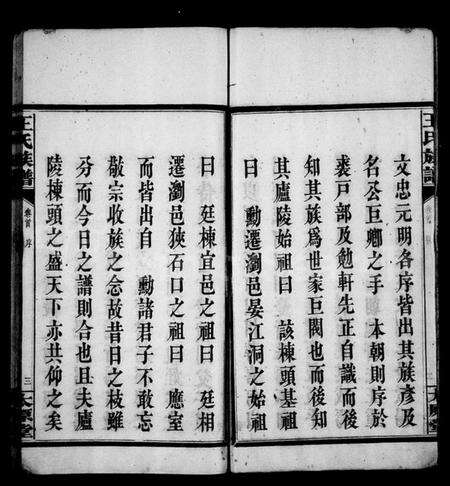 王氏族譜
卷首 序
文忠元明各序皆出其族彥及
名公巨卿之手 本朝則序於
裘戸部及勉軒先正自識而後
知其族爲世家巨閥也而後知
其廬陵始祖曰 該棟頭基祖
曰 勳遷瀏邑晏江洞之始祖
曰 廷棟宜邑之祖曰 廷相
遷瀏邑狹石口之祖曰 應室
而皆出自 勳諸君子不敢忘
敬宗收族之念故昔日之枝雖
分而今日之譜則合也且夫廬
陵棟頭之盛天下亦共仰之矣
王氏族譜
卷首 序
三
太原堂